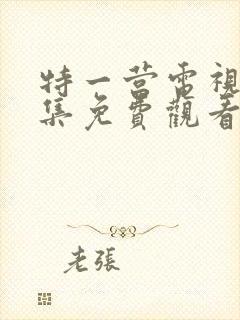 特一营電視
集免費觀看
老張